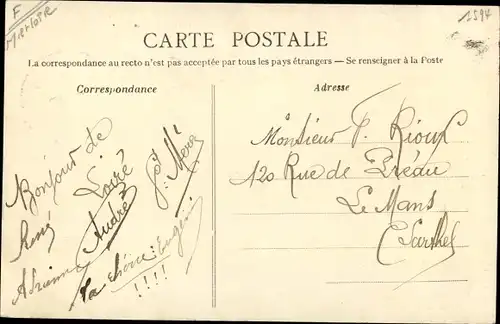 F
1594
CARTE POSTALE
La correspondance au recto n'est pas acceptée par tous les pays étrangers — Se renseigner à la Poste
Correspondance
Adresse
Bonjour de
Loiré
René
André
Adrienne
Monsieur F. Rioux
120 Rue de Préau
Le Mans
(Sarthe)